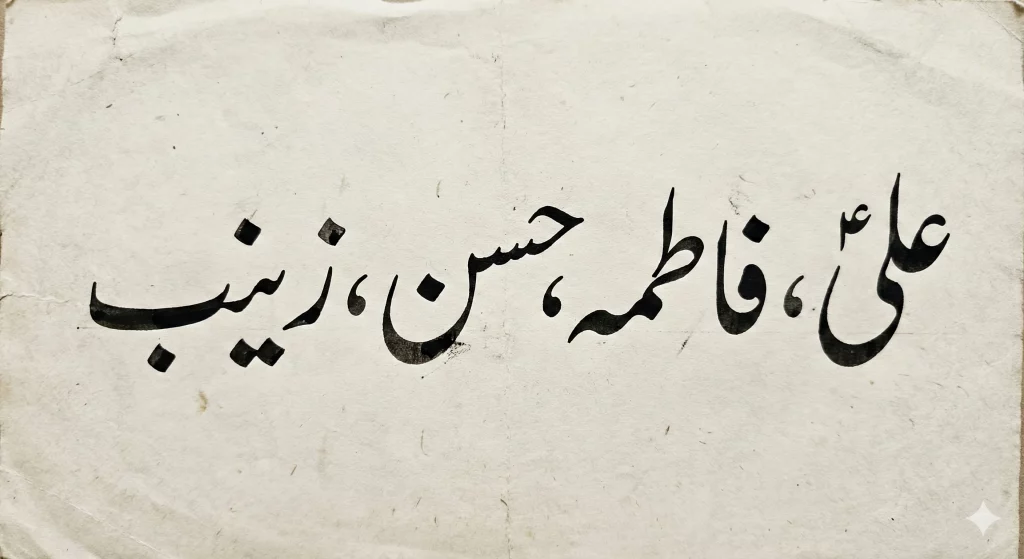 علیؑ، فاطمہ، حسن، زینب